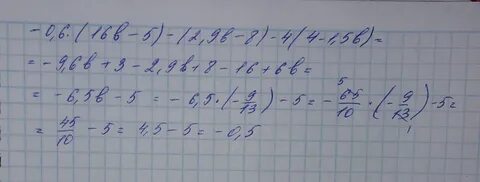 -0,6·(16b-5)-(2,9b-8)-4(4-1,5b)=
=-9,6b+3-2,9b+8-16+6b=
=-6,5b-5=-6,5·(-9/13)-5=-65/10·(-9/13)-5=
=45/10-5=4,5-5=-0,5